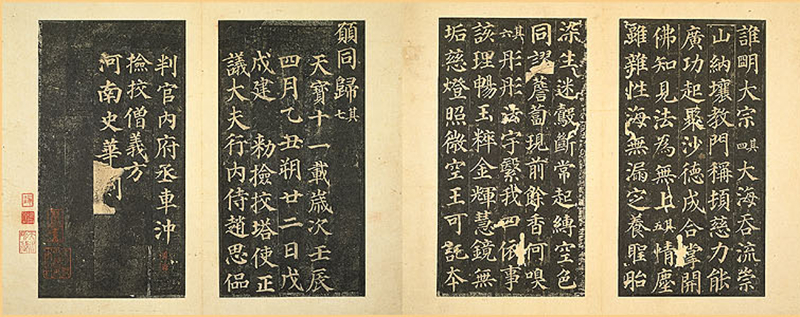 誰明大宗其四大海吞流崇
山納壤教門稱頓慈力能
廣功起聚沙德成合掌開
佛知見法為無上其五情塵
雖雜性海無漏定養聖胎
染生迷鷇斷常起縛空色
同謬薝蔔現前餘香何嗅
其六彤彤法宇繄我四依事
該理暢玉粹金輝慧鏡無
垢慈燈照微空王可託本
願同歸其七
天寶十一載歲次壬辰
四月乙丑朔廿二日戊
戌建 勑檢挍塔使正
議大夫行内侍趙思侃
判官内府丞車沖
檢挍僧義方
河南史華